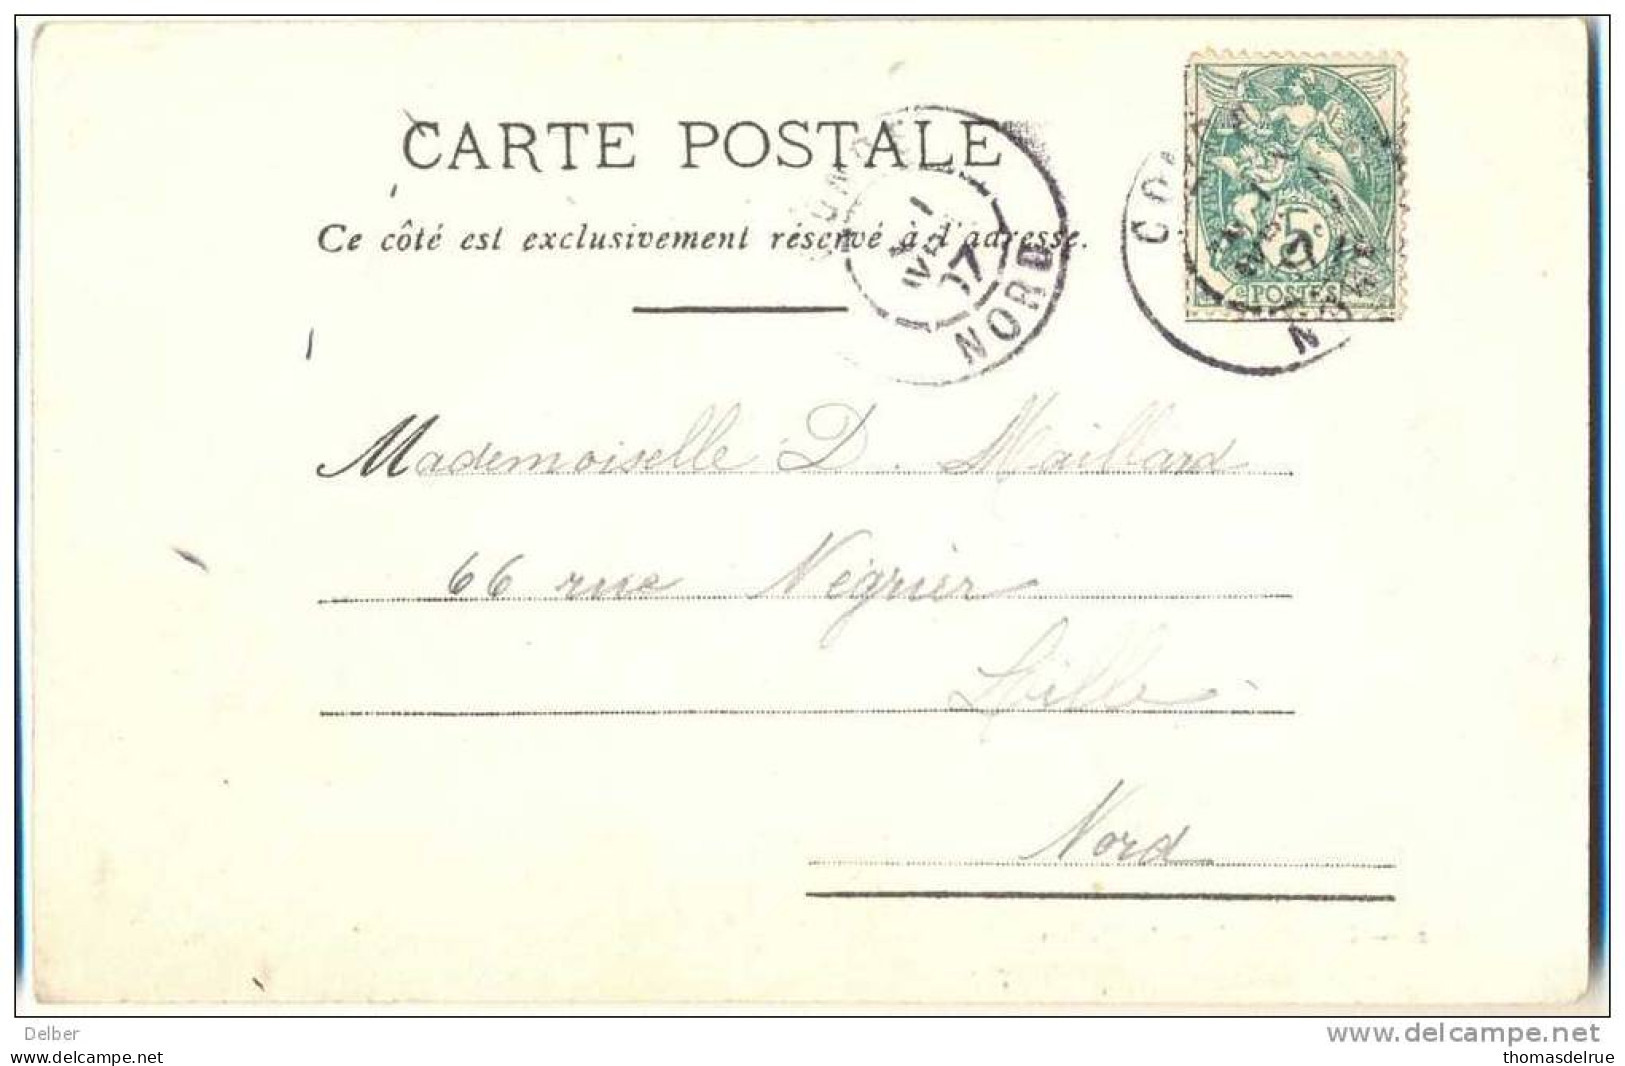 CARTE POSTALE
Ce côté est exclusivement réservé à l'adresse.
NORD
07
5c
POSTES
NORD
Mademoiselle D. Maillard
66 rue Négrier
Lille
Nord
Delber
www.delcampe.net
thomasdelrue